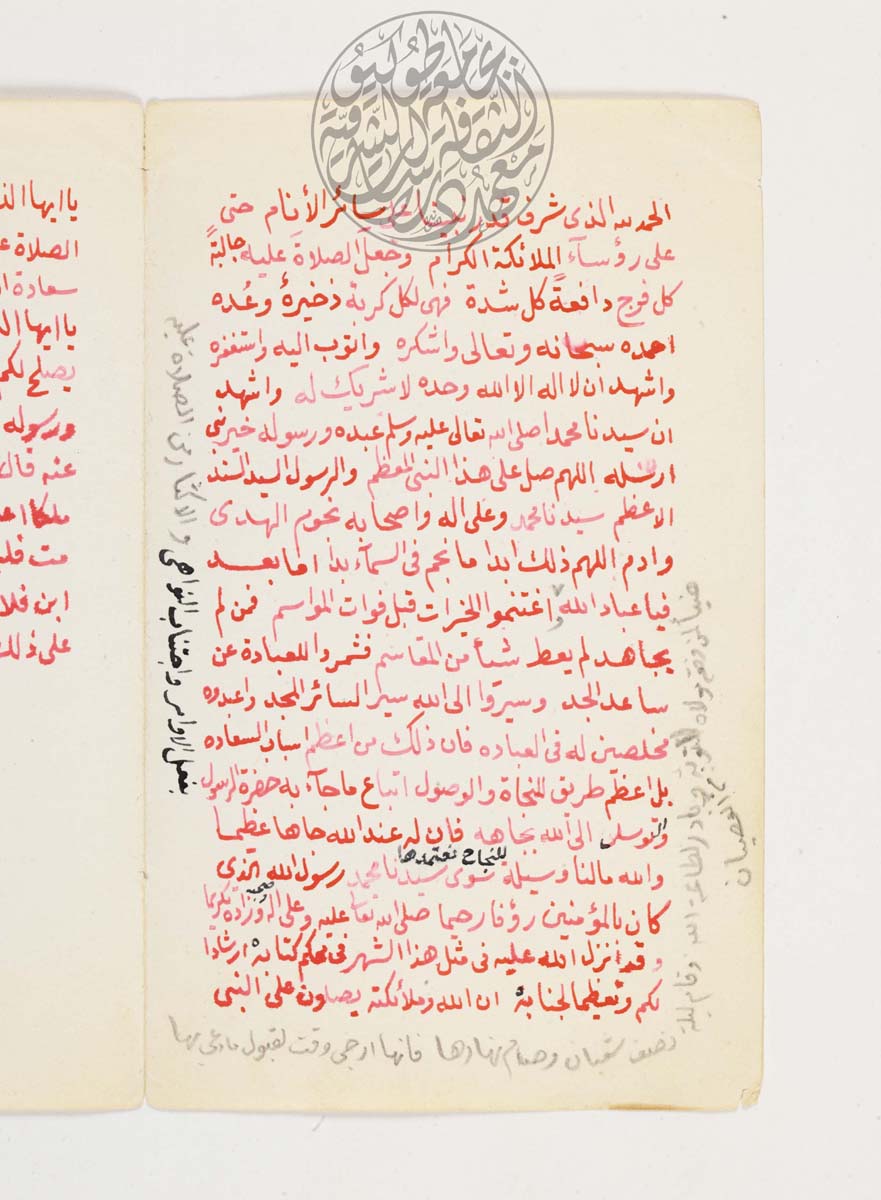 الحمد لله الذى شرف قدر نبينا على سائر الأنام حتى
على رؤسآء الملائكة الكرام وجعل الصلاة عليه جالبةً
كل فرج دافعةً كل شدة فهى لكل كربة ذخيرة وعُده
احمده سبحانه وتعالى واشكره واتوب اليه واستغفره
واشهد ان لا اله الا الله وحده لا شريك له واشهد
ان سيدنا محمدا صلى الله تعالى عليه وسلم عبده ورسوله خير نبى
ارسله اللهم صل على هذا النبى المعظم والرسول السيد السند
الاعظم سيدنا محمد وعلى اله واصحابه نجوم الهدى
وادم اللهم ذلك ابدا ما نجم فى السمآء بدا اما بعد
فيا عباد الله اغتنموا الخيرات قبل فوات المواسم فمن لم
يجاهد لم يعط شيأ من المقاسم فشمروا للعبادة عن
ساعد الجد وسيروا الى الله سير السائر المجد واعبدوه
مخلصين له فى العباده فان ذلك من اعظم اسباب السعاده
بل اعظم طريق للنجاة والوصول اتباع ما جآء به حضرة الرسول
والتوسل الى الله بجاهه فان له عند الله جاها عظيما
للنجاح نعتمدها
والله مالنا وسيلة سوى سيدنا محمد رسول الله الذى
كان بالمؤمنين رؤفا رحيما صلى الله تعالى عليه وعلى اله وصحبه وزاده تكريما
وقد انزل الله عليه فى مثل هذا الشهر فى محكم كتابه ارشادا
لكم وتعظيما لجنابه ان الله وملائكته يصلون على النبى
بفعل الاوامر واجتناب النواهى والاكثار من الصلاة عليه
هنيأ لمن وفقه مولاه للتوبة وبادر لطاعة الله وقام ليلة
نصف شعبان وصام نهارها فانها ارجى وقت لقبول ما دعى بها
العصيان
يا ايها
الصلاة
سعادة
يا ايها
يصلح لكم
ورسوله
عنه قال
ملكا
مت
ابن فلان
على ذلك